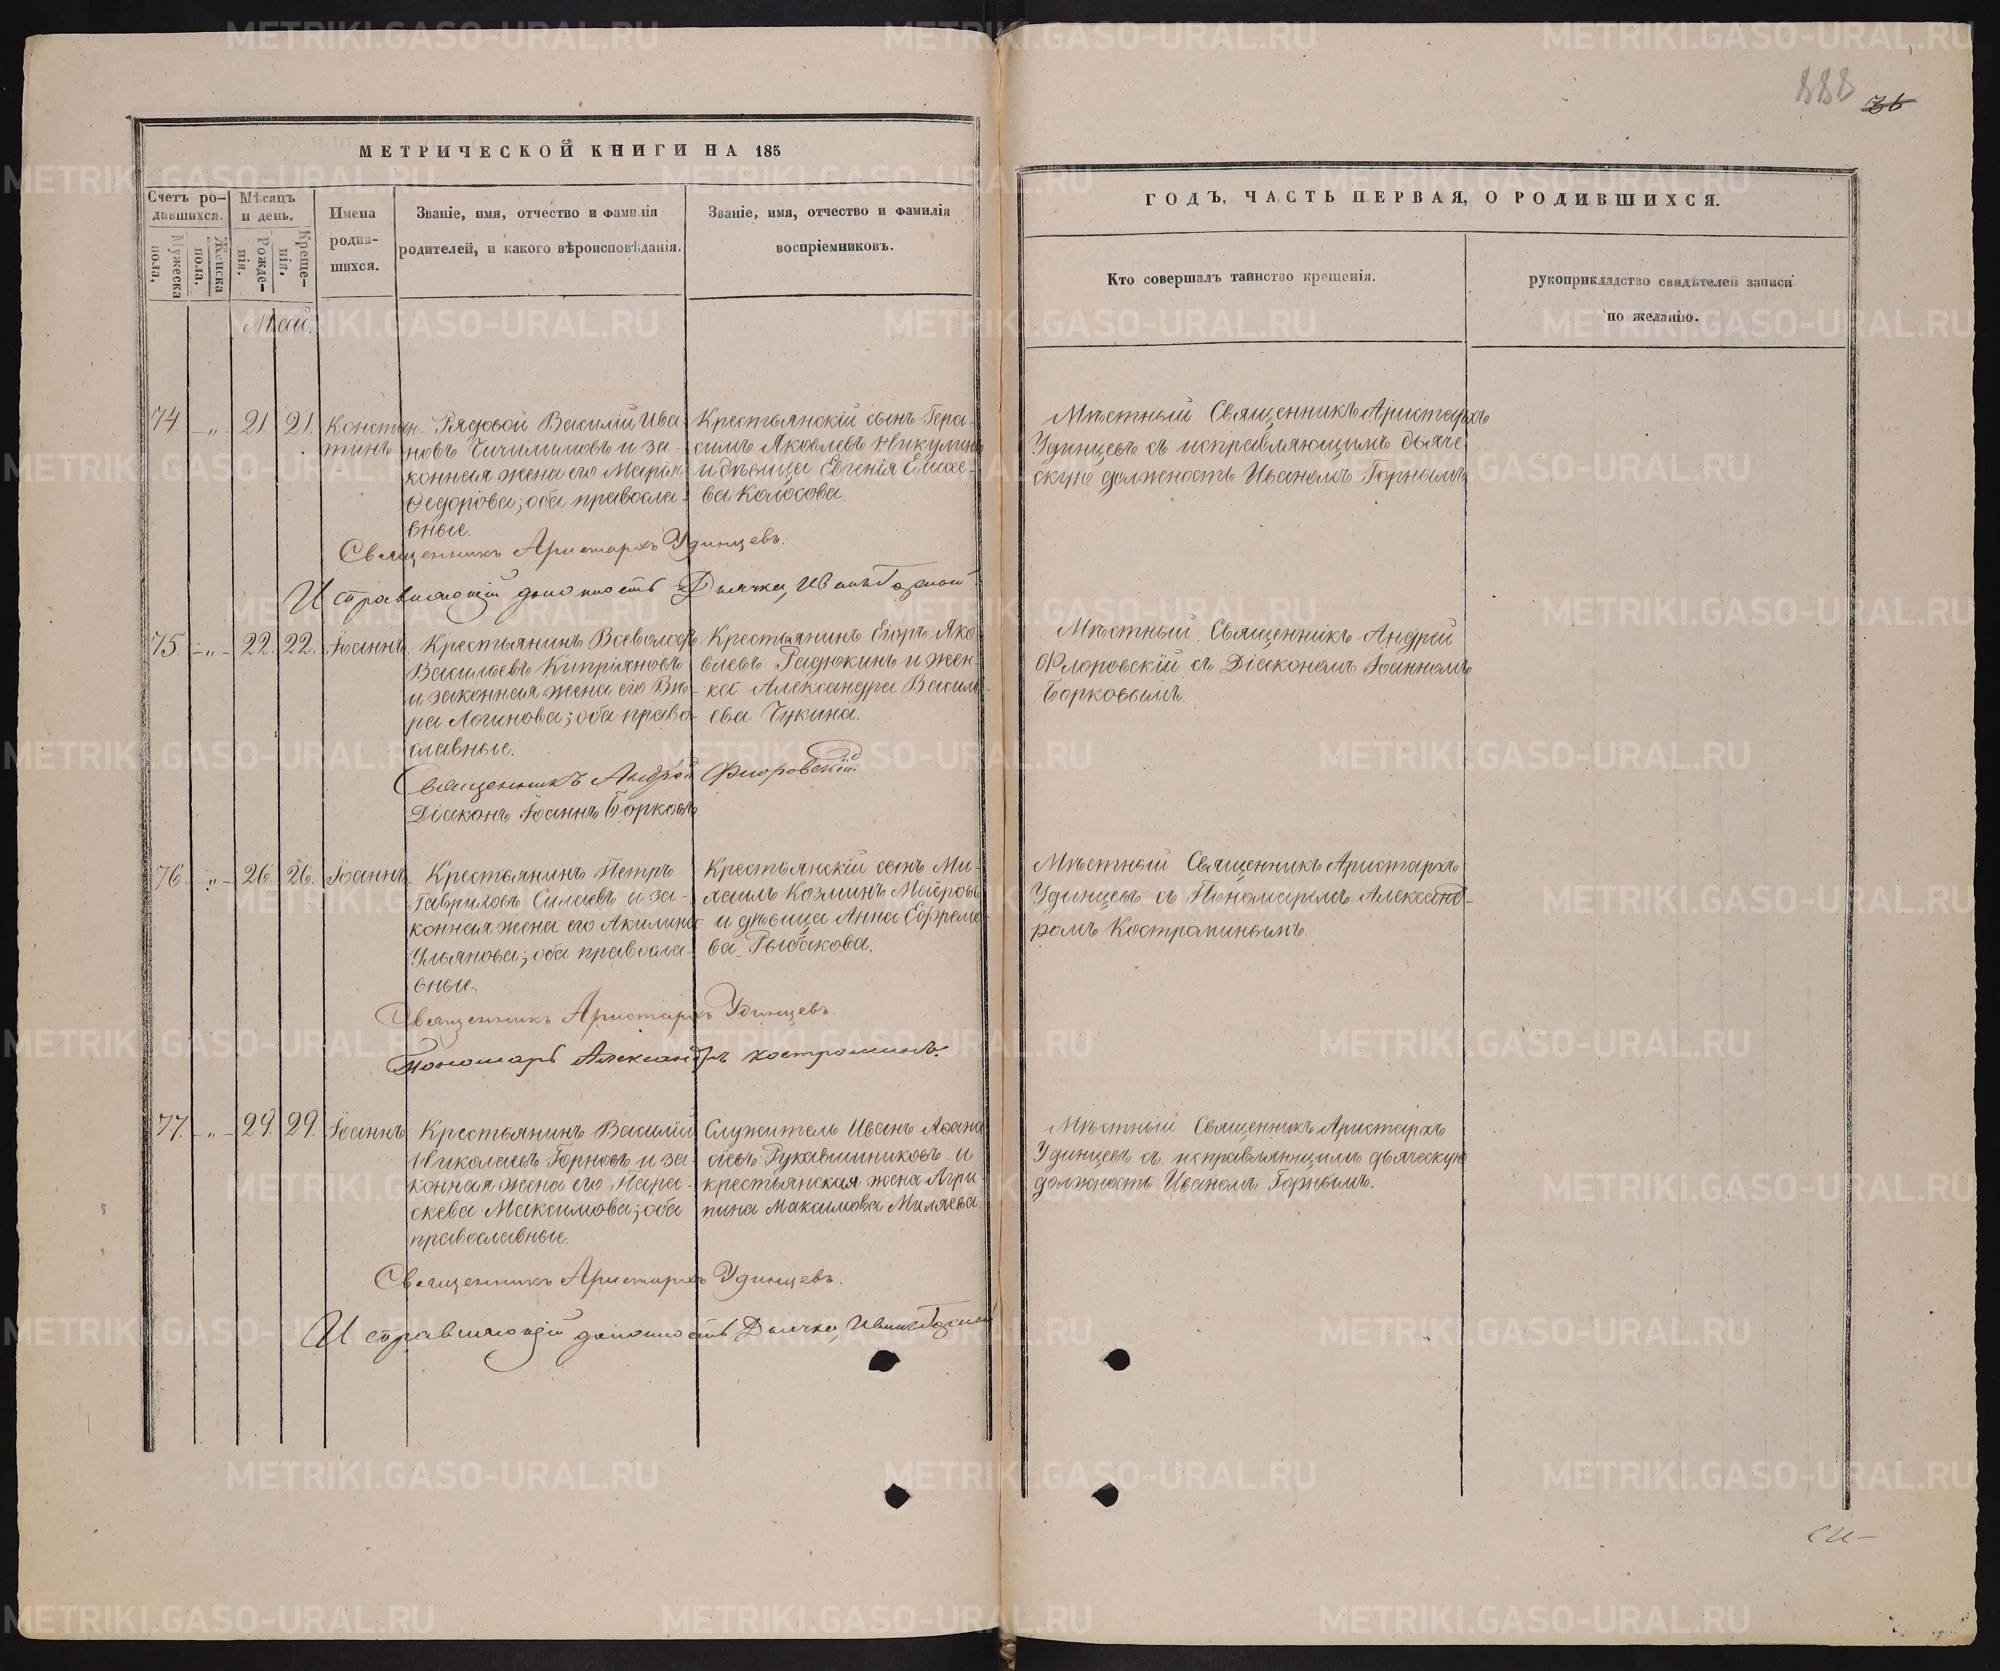 888 36
МЕТРИЧЕСКОЙ КНИГИ НА 185
ГОДЪ, ЧАСТЬ ПЕРВАЯ, О РОДИВШИХСЯ.
Счетъ ро-
дившихся.
Мужеска пола,
Женска пола.
Мѣсяцъ
и день.
Рожде-
нія.
Креще-
нія.
Имена
родив-
шихся.
Званіе, имя, отчество и фамилія
родителей, и какого вѣроисповѣданія.
Званіе, имя, отчество и фамилія
воспріемниковъ.
Кто совершалъ таинство крещенія.
рукоприкладство свидѣтелей записи
по желанію.
Май.
74 — „ — 21. 21.
Констан-
тинъ
Рядовой Василій Ива-
новъ Чичимимовъ и за-
конная жена его Марія
Ѳедорова; оба правосла-
вные.
Крестьянскій сынъ Гера-
симъ Яковлевъ Никулинъ
и дѣвица Евгенія Елисе-
ва Колосова.
Мѣстный Священникъ Аристархъ
Удинцевъ съ исправляющимъ дьяче-
скую должность Иваномъ Горнымъ.
Священникъ Аристархъ Удинцевъ.
Исправляющій должность Дьячка, Иванъ Горной.
75. — „ — 22. 22. Іоаннъ.
Крестьянинъ Всеволодъ
Васильевъ Кипріяновъ
и законная жена его Вѣ-
ра Логинова; оба право-
славные.
Крестьянинъ Егоръ Яко-
влевъ Радюкинъ и жен-
ка Александра Василь-
ева Чукина.
Мѣстный Священникъ Андрей
Флоровскій съ Діакономъ Іоанномъ
Борковымъ.
Священникъ Андрей Флоровскій
Діаконъ Іоаннъ Борковъ.
76 — „ — 26. 26. Іоаннъ.
Крестьянинъ Петръ
Гавриловъ Силаевъ и за-
конная жена его Акилина
Ульянова; оба правосла-
вные.
Крестьянскій сынъ Ми-
хаилъ Козминъ Маёровъ
и дѣвица Анна Ефремо-
ва Рыбакова.
Мѣстный Священникъ Аристархъ
Удинцевъ съ Пономаремъ Александ-
ромъ Костроминымъ.
Священникъ Аристархъ Удинцевъ.
Пономарь Александръ Костроминъ.
77. — „ — 29. 29. Іоаннъ
Крестьянинъ Василій
Николаевъ Горновъ и за-
конная жена его Пара-
скева Максимова; оба
православные.
Служитель Иванъ Аѳана-
сіевъ Рукавишниковъ и
крестьянская жена Агри-
пина Максимова Миляева.
Мѣстный Священникъ Аристархъ
Удинцевъ съ исправляющимъ дьяческую
должность Иваномъ Горнымъ.
Священникъ Аристархъ Удинцевъ.
Исправляющій должность Дьячка, Иванъ Горной
METRIKI.GASO-URAL.RU